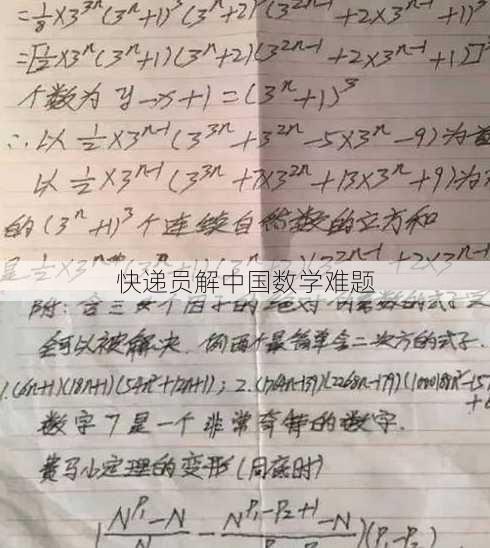 =⅛×3³ⁿ(3ⁿ+1)³(3ⁿ+2)³(3²ⁿ⁻¹+2×3ⁿ⁻¹+1)³
=[½×3ⁿ(3ⁿ+1)(3ⁿ+2)(3²ⁿ⁻¹+2×3ⁿ⁻¹+1)]³
个数为 y-x+1=(3ⁿ+1)³
∴以 ½×3ⁿ⁻¹(3³ⁿ+3²ⁿ-5×3ⁿ-9)为首
以 ½×3ⁿ⁻¹(3³ⁿ+7×3²ⁿ+13×3ⁿ+9)为
的(3ⁿ+1)³个连续自然数的立方和
是½×3ⁿ
快递员解中国数学难题
附:含三 个因子的绝对 数的式子
全可以被解决.例两个最简单含二次方的式子.
1.(6n+1)(18n+1)(54n²+12n+1);2.
数字7是一个非常奇特的数字.
费马小定理的变形(同底时)
(N^P₁-N/N - N^P₁-P₂+1-N/ )(P₁-P₂)